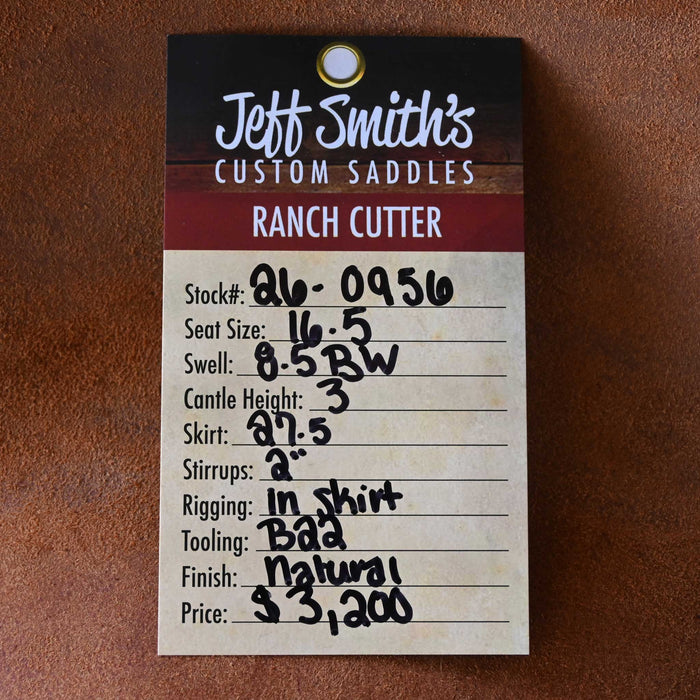 Jeff Smith's
CUSTOM SADDLES
RANCH CUTTER
Stock#: 26-0956
Seat Size: 16.5
Swell: 8.5 BW
Cantle Height: 3
Skirt: 27.5
Stirrups: 2"
Rigging: in skirt
Tooling: Baa
Finish: Natural
Price: $3,200